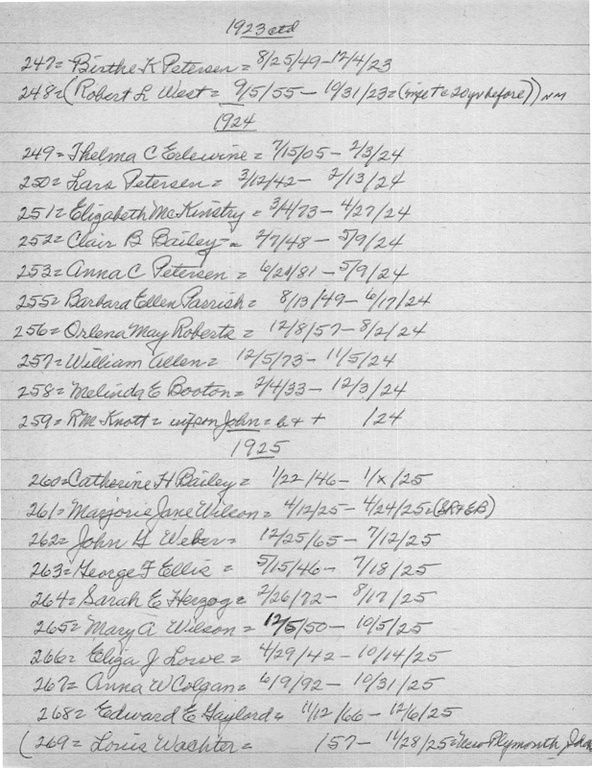 1923 ctd
247= Birthe K Petersen = 8/25/49-12/4/23
248=(Robert L West = 9/5/55 - 10/31/23=( 20 yr before)) NM
1924
249= Thelma C Erlewine = 7/15/05 - 2/3/24
250= Lars Petersen = 3/12/42 - 2/13/24
251= Elizabeth McKinstry = 3/4/73 - 4/27/24
252= Clair B Bailey = 2/7/48 - 5/9/24
253= Anna C Petersen = 6/20/81 - 5/9/24
255= Barbara Ellen Parrish = 8/13/49 - 6/17/24
256= Orlena May Roberts = 12/8/57 - 8/2/24
257= William Allen = 12/5/73 - 11/5/24
258= Melinda E Booton = 2/4/33 - 12/3/24
259= RM Knott = John = b+ + /24
1925
260=Catherine H Bailey = 1/22/46 - 1/x/25
261= Marjorie Jane Wilson = 4/12/25 - 4/24/25=(SR+EB)
262= John H Weber = 12/25/65 - 7/12/25
263= George F Ellis = 5/15/46 - 7/18/25
264= Sarah E Herzog = 2/26/72 - 8/17/25
265= Mary A Wilson = 12/5/50 - 10/5/25
266= Eliza J Lowe = 4/29/42 - 10/14/25
267= Anna W Colgan = 6/9/92 - 10/31/25
268= Edward E Gaylord = 11/12/66 - 12/6/25
(269= Louis Wachter = /57 - 11/28/25=New Plymouth, Idaho